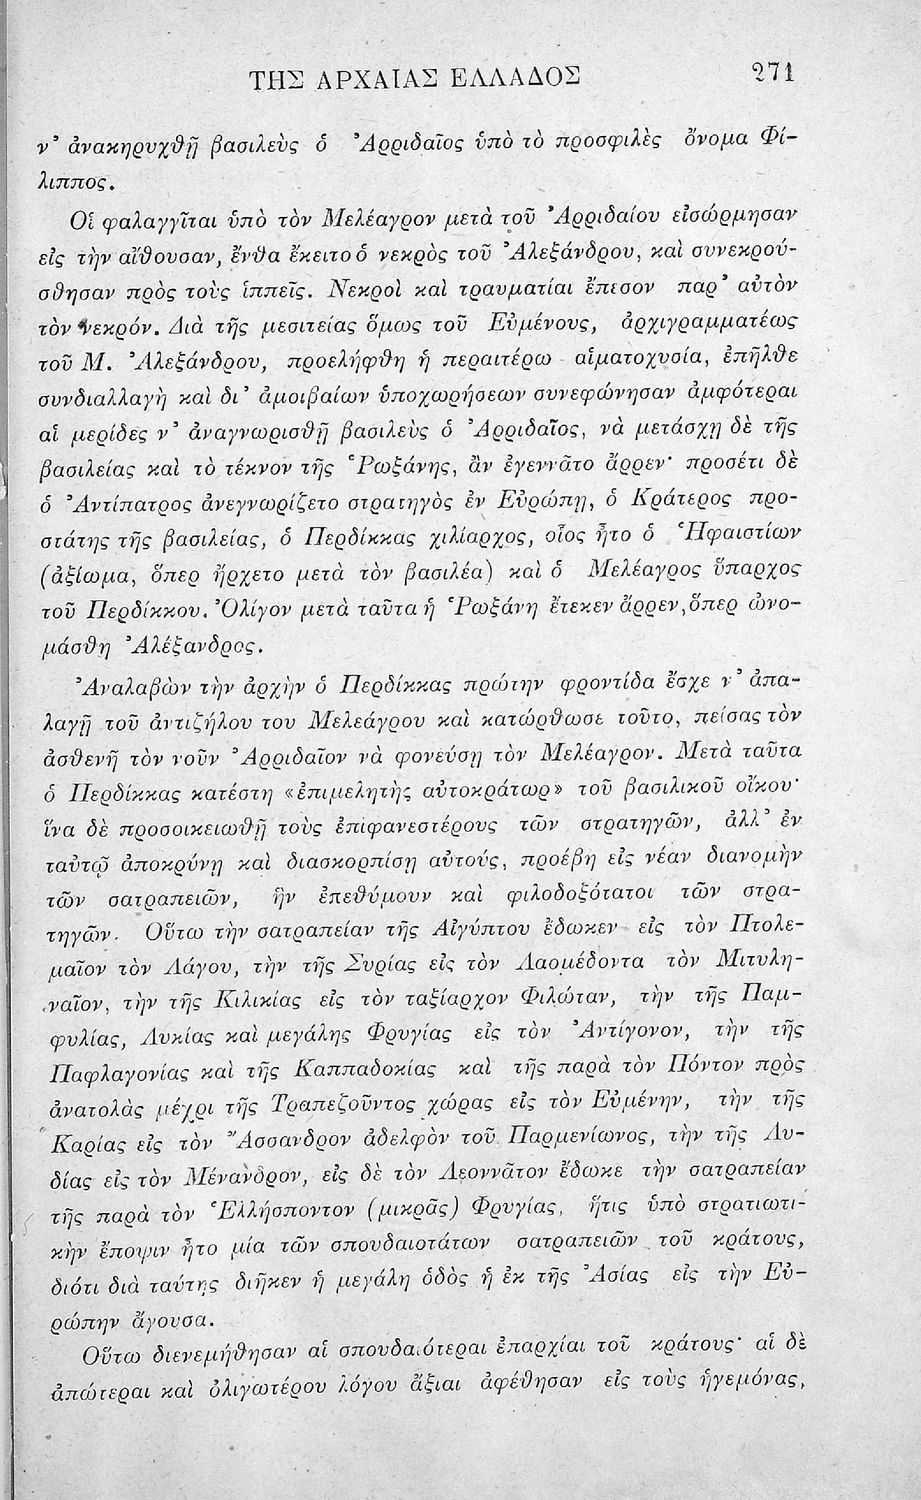 ΤΗΣ ΑΡΧΑΙΑΣ ΕΛΛΑΔΟΣ 271
ν’ ἀνακηρυχθῇ βασιλεὺς ὁ ᾿Αρριδαῖος ὑπὸ τὸ προσφιλὲς ὄνομα Φί-
λιππος.
Οἱ φαλαγγῖται ὑπὸ τὸν Μελέαγρον μετὰ τοῦ ᾿Αρριδαίου εἰσώρμησαν
εἰς τὴν αἴθουσαν, ἔνθα ἔκειτο ὁ νεκρὸς τοῦ ᾿Αλεξάνδρου, καὶ συνεκρού-
σθησαν πρὸς τοὺς ἱππεῖς. Νεκροὶ καὶ τραυματίαι ἔπεσον παρ’ αὐτὸν
τὸν νεκρόν. Διὰ τῆς μεσιτείας ὅμως τοῦ Εὐμένους, ἀρχιγραμματέως
τοῦ Μ. ᾿Αλεξάνδρου, προελήφθη ἡ περαιτέρω αἱματοχυσία, ἐπῆλθε
συνδιαλλαγὴ καὶ δι’ ἀμοιβαίων ὑποχωρήσεων συνεφώνησαν ἀμφότεραι
αἱ μερίδες ν’ ἀναγνωρισθῇ βασιλεὺς ὁ ᾿Αρριδαῖος, νὰ μετάσχῃ δὲ τῆς
βασιλείας καὶ τὸ τέκνον τῆς ῾Ρωξάνης, ἂν ἐγεννᾶτο ἄρρεν· προσέτι δὲ
ὁ ᾿Αντίπατρος ἀνεγνωρίζετο στρατηγὸς ἐν Εὐρώπῃ, ὁ Κράτερος προ-
στάτης τῆς βασιλείας, ὁ Περδίκκας χιλίαρχος, οἷος ἦτο ὁ ῾Ηφαιστίων
(ἀξίωμα, ὅπερ ἤρχετο μετὰ τὸν βασιλέα) καὶ ὁ Μελέαγρος ὕπαρχος
τοῦ Περδίκκου. ᾿Ολίγον μετὰ ταῦτα ἡ ῾Ρωξάνη ἔτεκεν ἄρρεν, ὅπερ ὠνο-
μάσθη ᾿Αλέξανδρος.
᾿Αναλαβὼν τὴν ἀρχὴν ὁ Περδίκκας πρώτην φροντίδα ἔσχε ν’ ἀπα-
λαγῇ τοῦ ἀντιζήλου του Μελεάγρου καὶ κατώρθωσε τοῦτο, πείσας τὸν
ἀσθενῆ τὸν νοῦν ᾿Αρριδαῖον νὰ φονεύσῃ τὸν Μελέαγρον. Μετὰ ταῦτα
ὁ Περδίκκας κατέστη «ἐπιμελητὴς αὐτοκράτωρ» τοῦ βασιλικοῦ οἴκου·
ἵνα δὲ προσοικειωθῇ τοὺς ἐπιφανεστέρους τῶν στρατηγῶν, ἀλλ’ ἐν
ταὐτῷ ἀποκρύνῃ καὶ διασκορπίσῃ αὐτούς, προέβη εἰς νέαν διανομὴν
τῶν σατραπειῶν, ἣν ἐπεθύμουν καὶ φιλοδοξότατοι τῶν στρα-
τηγῶν. Οὕτω τὴν σατραπείαν τῆς Αἰγύπτου ἔδωκεν εἰς τὸν Πτολε-
μαῖον τὸν Λάγου, τὴν τῆς Συρίας εἰς τὸν Λαομέδοντα τὸν Μιτυλη-
ναῖον, τὴν τῆς Κιλικίας εἰς τὸν ταξίαρχον Φιλώταν, τὴν τῆς Παμ-
φυλίας, Λυκίας καὶ μεγάλης Φρυγίας εἰς τὸν ᾿Αντίγονον, τὴν τῆς
Παφλαγονίας καὶ τῆς Καππαδοκίας καὶ τῆς παρὰ τὸν Πόντον πρὸς
ἀνατολὰς μέχρι τῆς Τραπεζοῦντος χώρας εἰς τὸν Εὐμένην, τὴν τῆς
Καρίας εἰς τὸν ῎Ασσανδρον ἀδελφὸν τοῦ Παρμενίωνος, τὴν τῆς Λυ-
δίας εἰς τὸν Μένανδρον, εἰς δὲ τὸν Λεοννᾶτον ἔδωκε τὴν σατραπείαν
τῆς παρὰ τὸν ῾Ελλήσποντον (μικρᾶς) Φρυγίας, ἥτις ὑπὸ στρατιωτι-
κὴν ἔποψιν ἦτο μία τῶν σπουδαιοτάτων σατραπειῶν τοῦ κράτους,
διότι διὰ ταύτης διῆκεν ἡ μεγάλη ὁδὸς ἡ ἐκ τῆς ᾿Ασίας εἰς τὴν Εὐ-
ρώπην ἄγουσα.
Οὕτω διενεμήθησαν αἱ σπουδαιότεραι ἐπαρχίαι τοῦ κράτους· αἱ δὲ
ἀπώτεραι καὶ ὀλιγωτέρου λόγου ἄξιαι ἀφέθησαν εἰς τοὺς ἡγεμόνας,